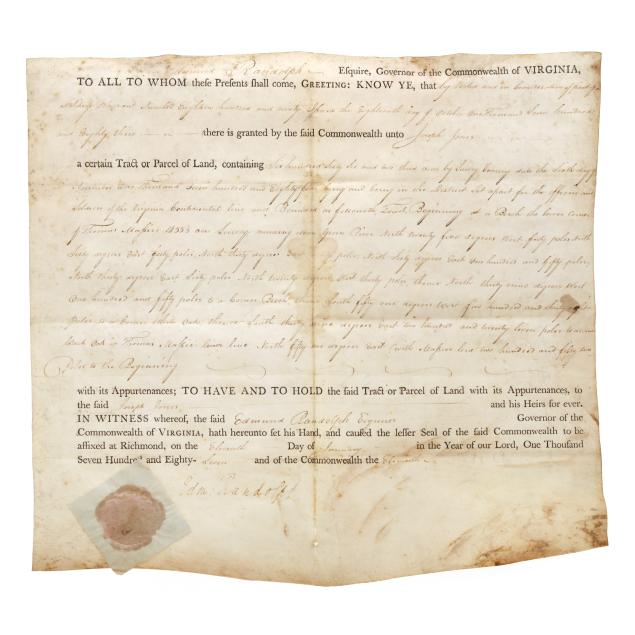 Edmund Randolph Esquire, Governor of the Commonwealth of VIRGINIA,
TO ALL TO WHOM these Presents shall come, GREETING: KNOW YE, that by Virtue and in
Military Warrant Number Eighteen hundred and ninety the Eighteenth day of October One Thousand Seven hundred
and Eighty three there is granted by the said Commonwealth unto Joseph Jones
a certain Tract or Parcel of Land, containing Six hundred Sixty six and two third acres by Survey bearing date the day
One Thousand Seven hundred and Eighty lying and being in the District Set apart for the officers and
Soldiers of the Virginia Continental line and Bounded as followeth, Towit, Beginning at a Beech the lower corner
of Thomas Massie's Survey running Green River North twenty five degrees West forty poles North
Sixty degrees East forty poles, North thirty degrees East poles, North Sixty degrees East one hundred and fifty poles,
North thirty degrees East Sixty poles, North twenty degrees West thirty poles, thence North thirty nine degrees West
One hundred and fifty poles to a Corner thence South fifty one degrees West five hundred and
poles to a Corner white oak thence South thirty nine degrees East two hundred and twenty seven poles to a
black oak in Thomas Massie's lower line North fifty one degrees East with Massie's line two hundred and fifty two
Poles to the Beginning
with its Appurtenances; TO HAVE AND TO HOLD the said Tract or Parcel of Land with its Appurtenances, to
the said Joseph Jones and his Heirs for ever.
IN WITNESS whereof, the said Edmund Randolph Esquire Governor of the
Commonwealth of VIRGINIA, hath hereunto set his Hand, and caused the lesser Seal of the said Commonwealth to be
affixed at Richmond, on the Day of January in the Year of our Lord, One Thousand
Seven Hundred and Eighty- Seven and of the Commonwealth the Eleventh
Edm: Randolph